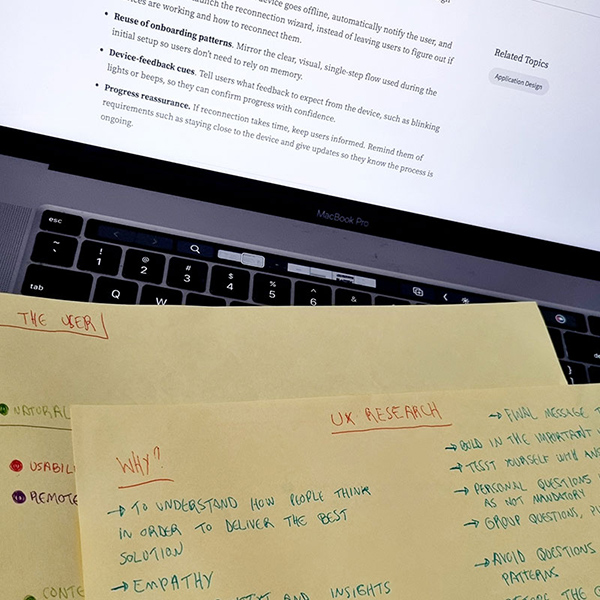 device goes offline, automatically notify the user, and
launch the reconnection wizard, instead of leaving users to figure out if
are working and how to reconnect them.
• Reuse of onboarding patterns. Mirror the clear, visual, single-step flow used during the
initial setup so users don't need to rely on memory.
• Device-feedback cues. Tell users what feedback to expect from the device, such as blinking
lights or beeps, so they can confirm progress with confidence.
• Progress reassurance. If reconnection takes time, keep users informed. Remind them of
requirements such as staying close to the device and give updates so they know the process is
ongoing.
Related Topics
Application Design
MacBook Pro
esc
~ ! 1 @ 2 # 3 $ 4 % 5 ^ 6 &
tab Q W
THE USER
NATURAL
REMOTE
UX RESEARCH
WHY?
→ TO UNDERSTAND HOW PEOPLE THINK
IN ORDER TO DELIVER THE BEST
SOLUTION
→ EMPATHY
AND INSIGHTS
→ FINAL MESSAGE
→ BOLD IN THE IMPORTANT
→ TEST YOURSELF WITH
→ PERSONAL QUESTIONS
AS NOT MANDATORY
→ GROUP QUESTIONS,
→ AVOID QUESTIONS
PATTERNS
BEFORE THE